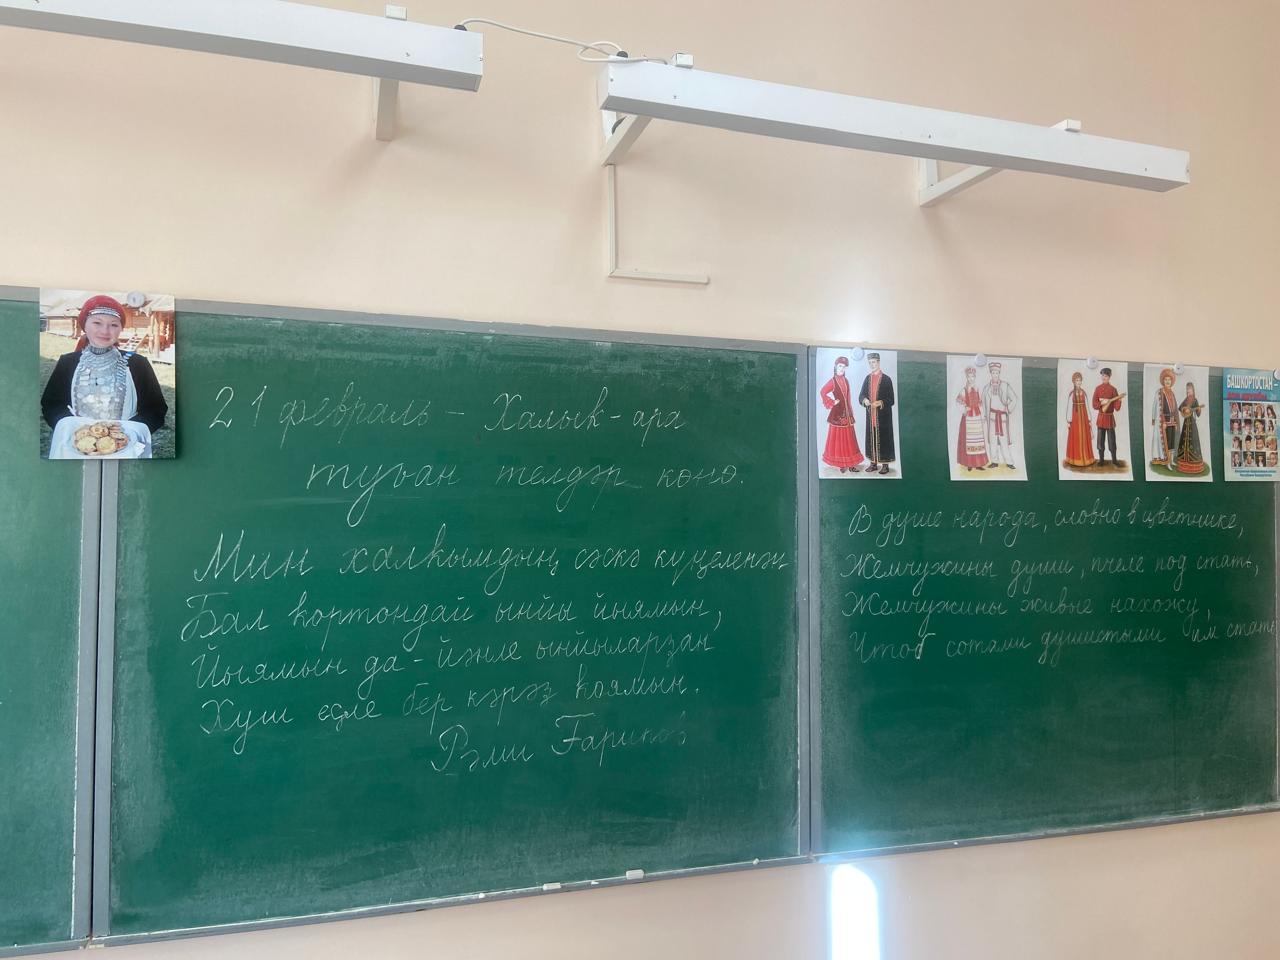 21 февраль – Халыҡ-ара
туған телдәр көнө.
Мин халҡымдың сәскә күңеленән
Бал ҡортондай ынйы йыямын,
Йыямын да – йәнле ынйыларҙан
Хуш еҫле бер кәрәҙ ҡоямын.
Рәми Ғарипов
БАШКОРТОСТАН –
В душе народа, словно в цветнике,
Жемчужины души, пчеле под стать,
Жемчужины живые нахожу,
Чтоб сотами душистыми им стать